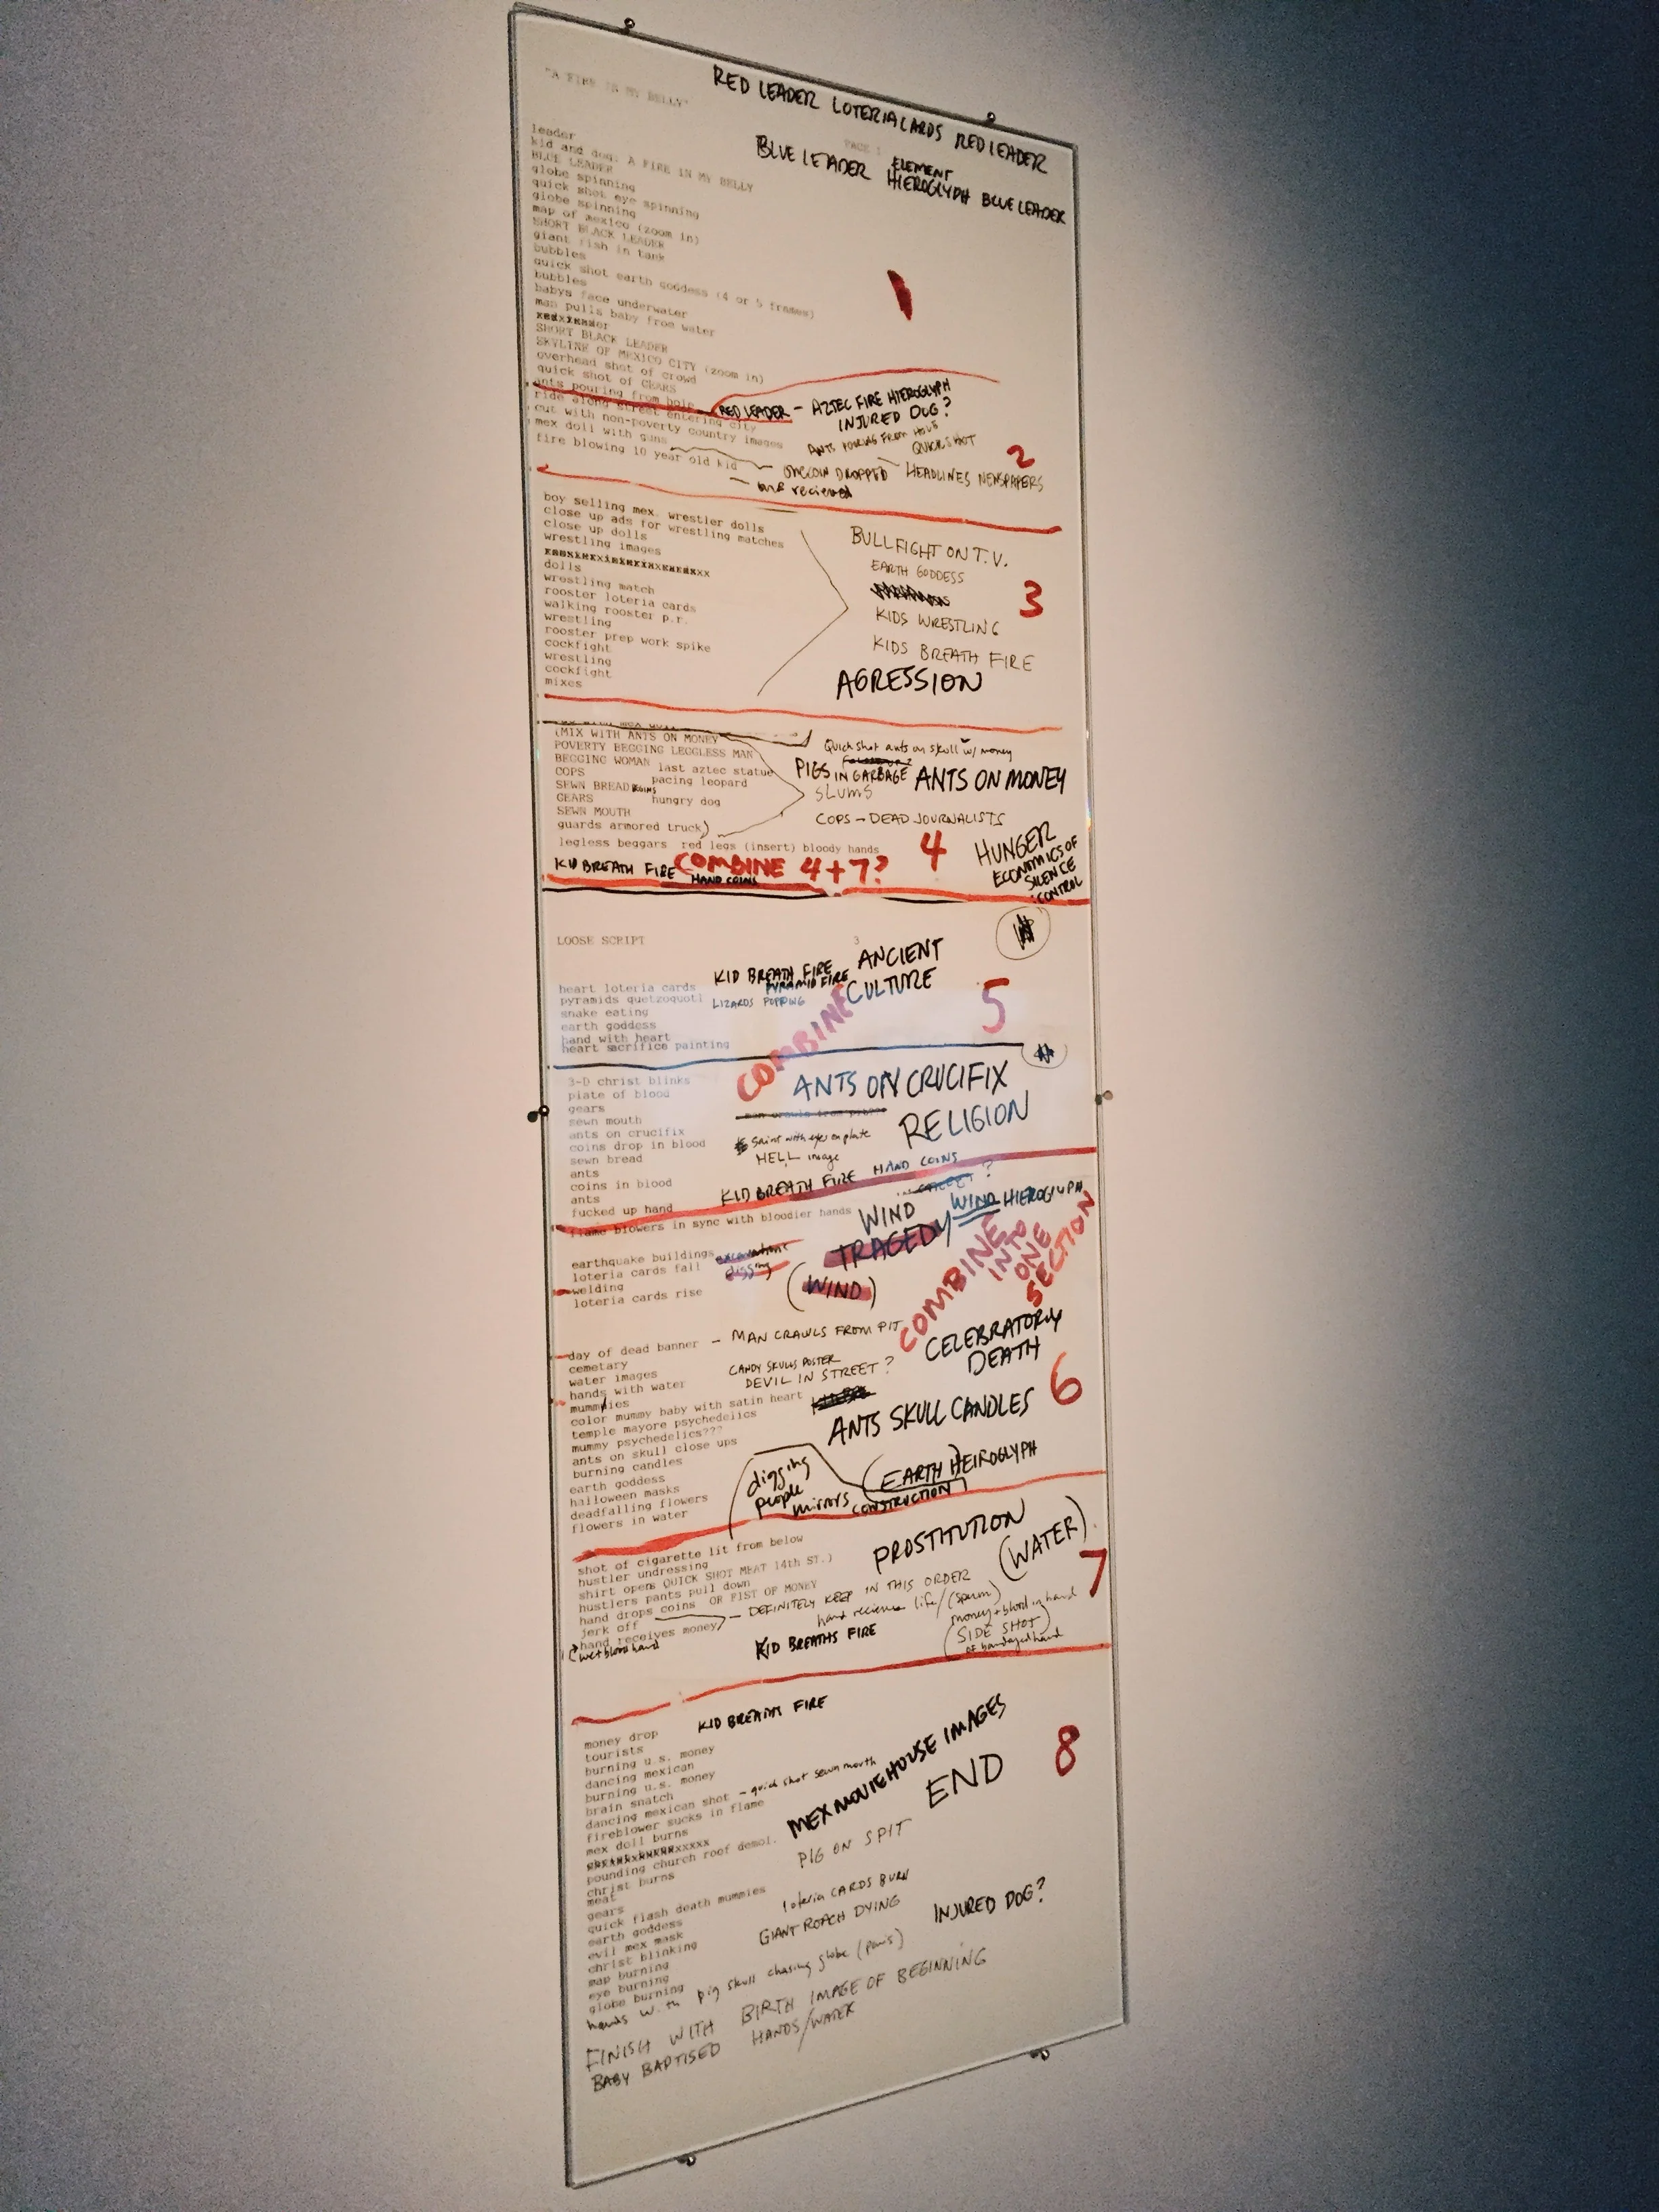 "A FIRE IN MY BELLY"
RED LEADER LOTERIA CARDS RED LEADER
PAGE 1
BLUE LEADER ELEMENT HIEROGLYPH BLUE LEADER
leader
kid and dog. A FIRE IN MY BELLY
BLUE LEADER
globe spinning
quick shot eye spinning
globe spinning
map of mexico (zoom in)
SHORT BLACK LEADER
giant fish in tank
bubbles
quick shot earth goddess (4 or 5 frames)
bubbles
babys face underwater
man pulls baby from water
SHORT BLACK LEADER
SKYLINE OF MEXICO CITY (zoom in)
overhead shot of crowd
quick shot of GEARS
1
ants pouring from hole
RED LEADER - AZTEC FIRE HIEROGLYPH
INJURED DOG?
ride along street entering city
cut with non-poverty country images
mex doll with guns
fire blowing 10 year old kid
ANTS POURING FROM HOLE
QUICK SHOT
2
ONE COIN DROPPED
HEADLINES NEWSPAPERS
one recieved
boy selling mex. wrestler dolls
close up ads for wrestling matches
close up dolls
wrestling images
dolls
wrestling match
rooster loteria cards
walking rooster p.r.
wrestling
rooster prep work spike
cockfight
wrestling
cockfight
mixes
BULLFIGHT ON T.V.
EARTH GODDESS
3
KIDS WRESTLING
KIDS BREATH FIRE
AGRESSION
(MIX WITH ANTS ON MONEY
POVERTY BEGGING LEGGLESS MAN
BEGGING WOMAN last aztec statue
COPS pacing leopard
SEWN BREAD COINS
GEARS hungry dog
SEWN MOUTH
guards armored truck)
legless beggars red legs (insert) bloody hands
Quick shot ants on skull w/ money
PIGS IN GARBAGE ANTS ON MONEY
SLUMS
COPS - DEAD JOURNALISTS
4
HUNGER
ECONOMICS OF
SILENCE
CONTROL
KID BREATH FIRE COMBINE 4+7?
HAND COINS
LOOSE SCRIPT 3
heart loteria cards
pyramids quetzoquotl
snake eating
earth goddess
hand with heart
heart sacrifice painting
KID BREATH FIRE ANCIENT
PYRAMID FIRE CULTURE
LIZARDS POPPING
COMBINE
5
3-D christ blinks
plate of blood
gears
sewn mouth
ants on crucifix
coins drop in blood
sewn bread
ants
coins in blood
ants
fucked up hand
ANTS ON CRUCIFIX
RELIGION
saint with eyes on plate
HELL image
KID BREATH FIRE HAND COINS
flame blowers in sync with bloodier hands
WIND WIND HIEROGLYPH
TRAGEDY
(WIND)
earthquake buildings excavations
loteria cards fall digging
welding
loteria cards rise
COMBINE
INTO
ONE
SECTION
day of dead banner - MAN CRAWLS FROM PIT
cemetary
water images
hands with water
mummies
color mummy baby with satin heart
temple mayore psychedelics
mummy psychedelics???
ants on skull close ups
burning candles
earth goddess
halloween masks
deadfalling flowers
flowers in water
CANDY SKULLS POSTER
DEVIL IN STREET?
CELEBRATORY
DEATH
6
ANTS SKULL CANDLES
digging
people
mirrors
EARTH HEIROGLYPH
CONSTRUCTION
shot of cigarette lit from below
hustler undressing
shirt opens QUICK SHOT MEAT 14th ST.)
hustlers pants pull down
hand drops coins OR FIST OF MONEY
jerk off
hand receives money
(wet blood hand
PROSTITUTION
(WATER)
7
DEFINITELY KEEP IN THIS ORDER
hand recieves life/(sperm)
money + blood in hand
(SIDE SHOT)
of bandaged hand
KID BREATHS FIRE
KID BREATHS FIRE
money drop
tourists
burning u.s. money
dancing mexican
burning u.s. money
brain snatch
dancing mexican shot - quick shot sewn mouth
fireblower sucks in flame
mex doll burns
pounding church roof demol.
christ burns
meat
gears
quick flash death mummies
earth goddess
evil mex mask
christ blinking
map burning
eye burning
globe burning
MEX MOVIEHOUSE IMAGES
END
8
PIG ON SPIT
loteria CARDS BURN
GIANT ROACH DYING
INJURED DOG?
hands with pig skull chasing globe (paris)
FINISH WITH BIRTH IMAGE OF BEGINNING
BABY BAPTISED HANDS/WATER